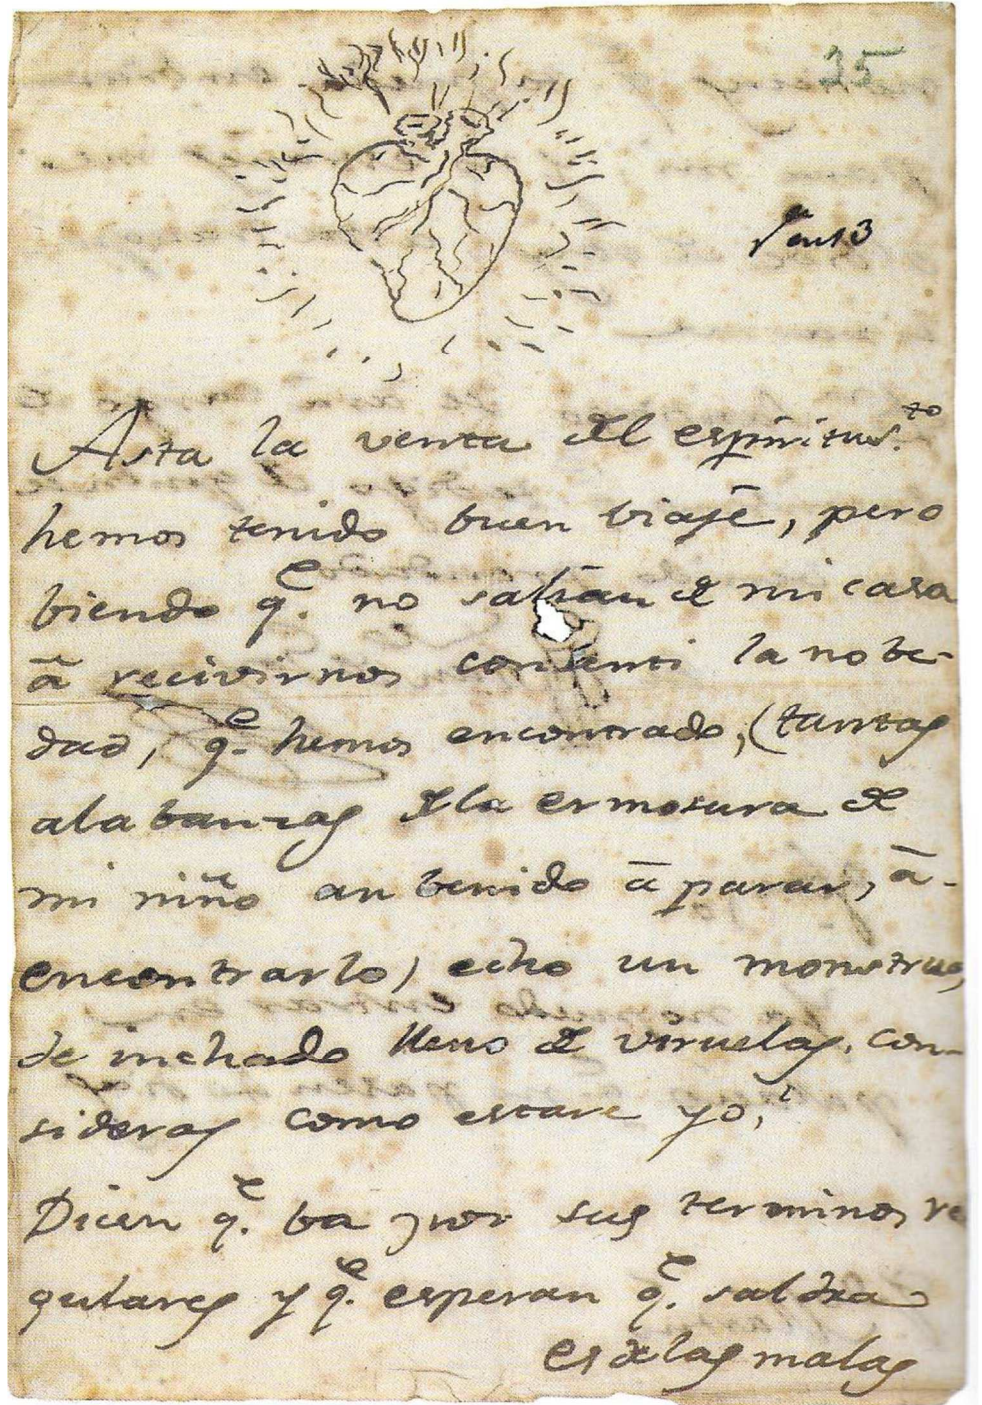 25
Asta la venta del espiritus.to
hemos tenido buen biaje, pero
biendo q.e no salian de mi casa
â recivirnos consenti la nobe-
dad, q.e hemos encontrado, (tantas
alabanzas de la ermosura de
mi niño an benido â parar, â-
encontrarlo) echo un monstruo,
de inchado lleno de viruelas. con-
sideras como estare yo,
Dicen q.e ba por sus terminos re
gulares y q.e esperan q.e saldra
es de las malas